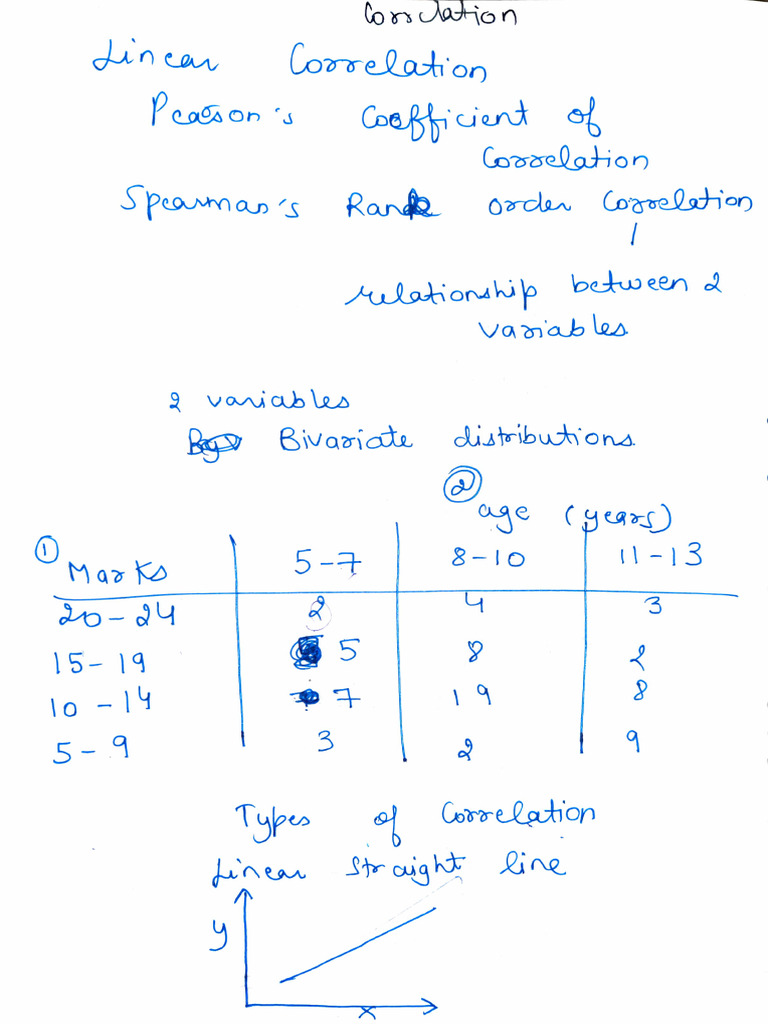 Correlation
Linear Correlation
Pearson's Coefficient of
Correlation
Spearman's Rank order Correlation
relationship between 2
variables
2 variables
Bivariate distributions
②
age (years)
① Marks 5-7 8-10 11-13
20-24 2 4 3
15-19 5 8 2
10-14 7 19 8
5-9 3 2 9
Types of Correlation
Linear Straight line
y
x